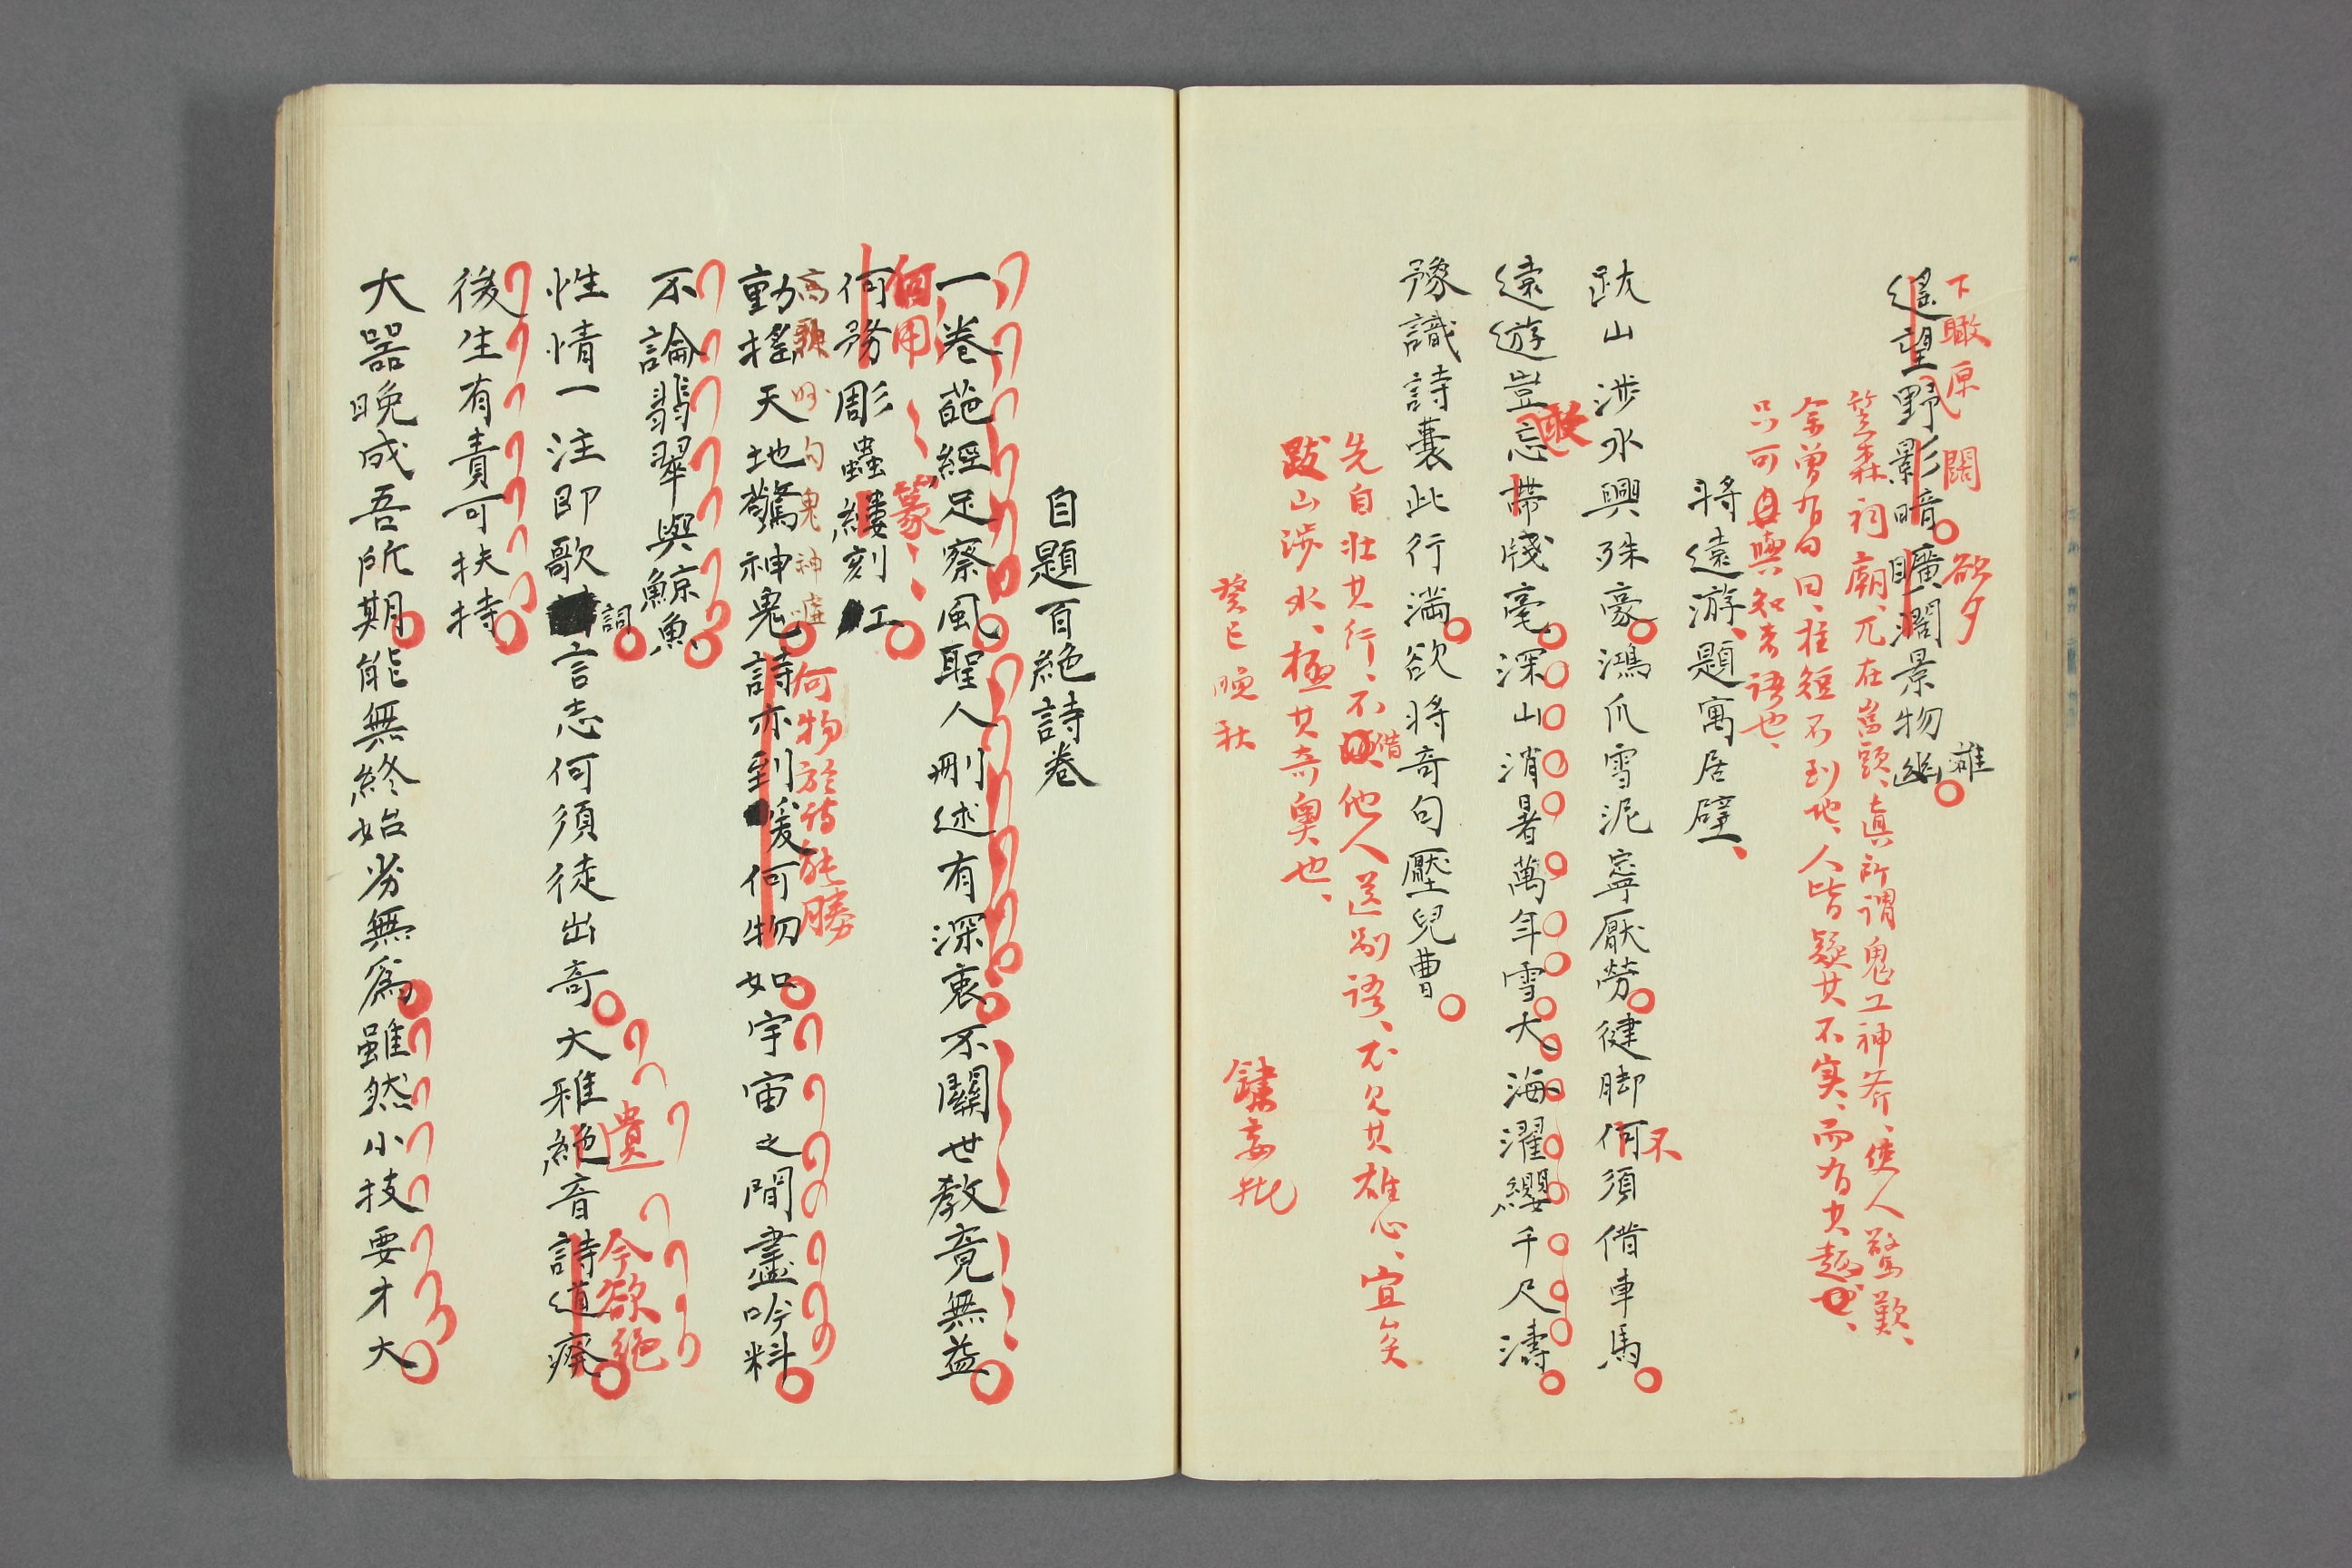 下瞰原闊 欲夕
遙望野影暗曠濶景物幽
難
笠森祠廟、兀在嵓頭、真所謂鬼工神斧、使人驚歎、
余曾有句曰、柱短不到地、人皆疑其不実、而有大趣、
只可與知者語也、
將遠游、題寓居壁、
跋山渉水興殊豪鴻爪雪泥寧厭勞健脚何須借車馬
不
遠遊豈忘帶殘毫深山消暑萬年雪大海濯纓千尺濤
敢
豫識詩囊此行滿欲將奇句壓兒曹
先自壯其行、不借他人送別語、尤見其雄心、宜矣
跋山渉水、極其奇奧也、
癸巳晩秋
妄批
自題百絶詩卷
一卷葩經足察風聖人刪述有深衷不關世教竟無益
何用 篆
何務彫蟲縷刻工
高歌妙句鬼神
何物於詩能勝
動搖天地驚神鬼詩亦到 何物如宇宙之間盡吟料
不論翡翠與鯨魚
詞
性情一注即歌 言志何須徒出奇大雅絶音詩道廢
遺 今欲絶
後生有責可扶持
大器晩成吾所期能無終始劣無爲雖然小技要才大